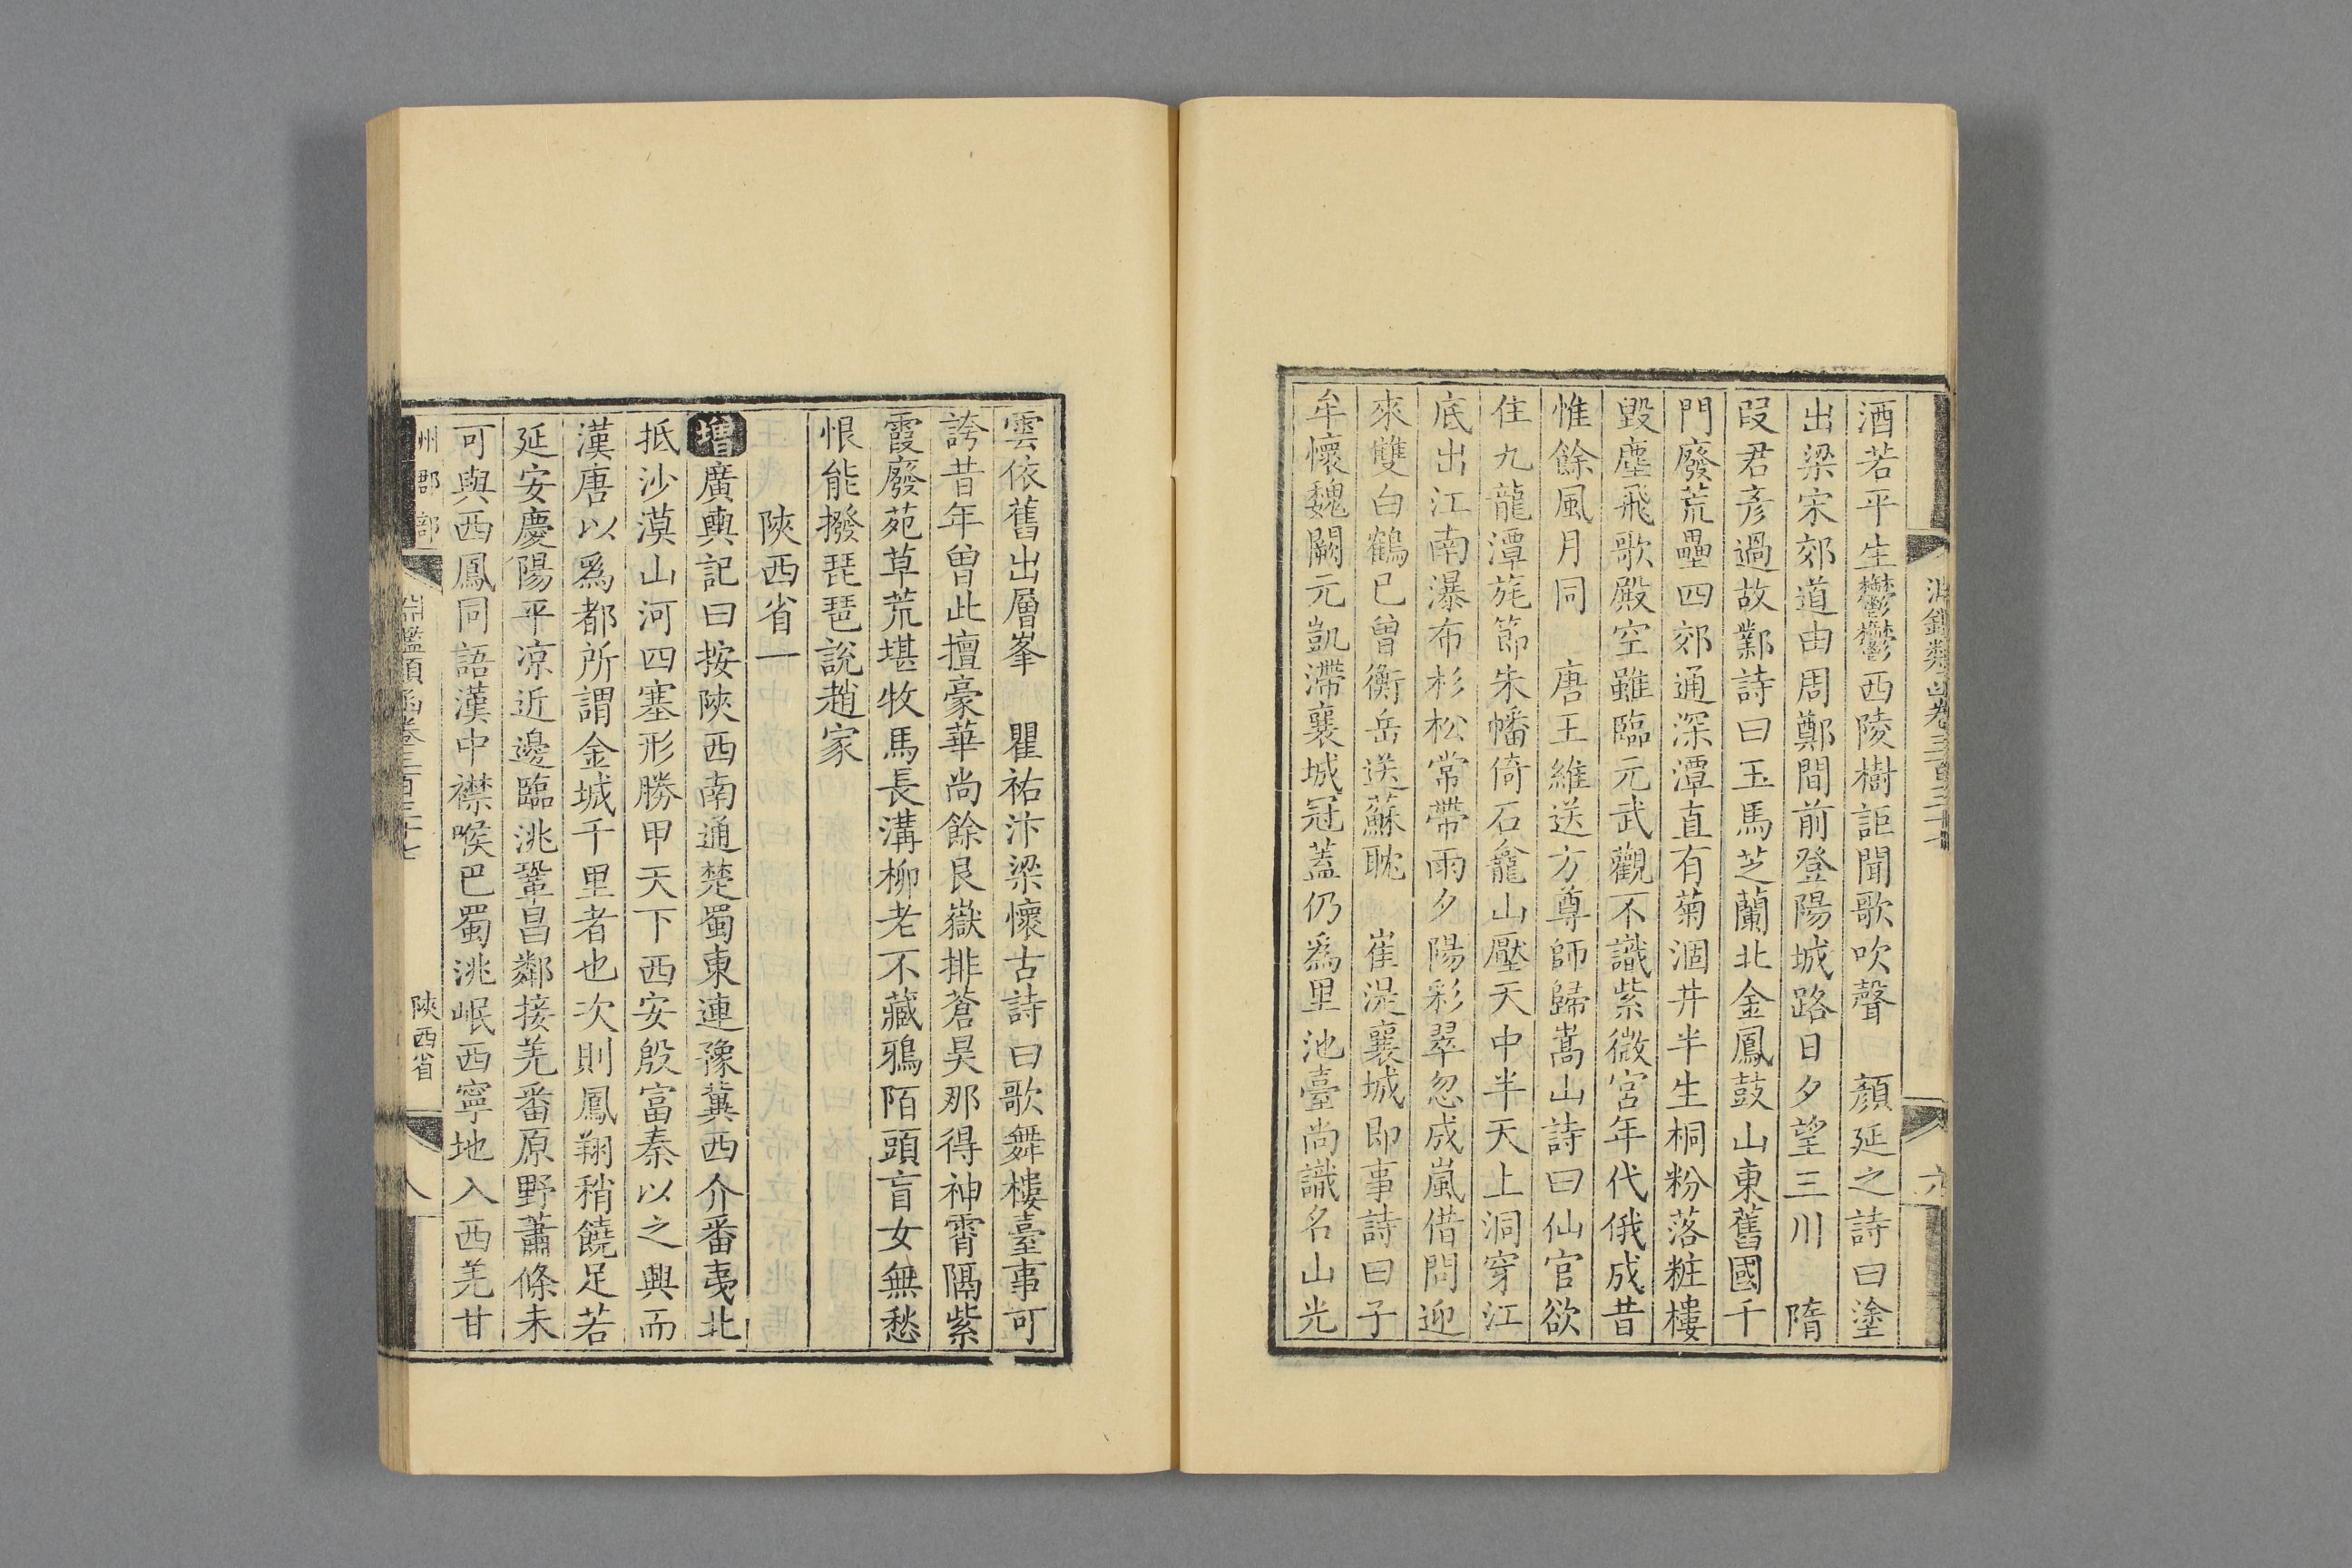 酒若平生鬱鬱西陵樹詎聞歌吹聲　顏延之詩曰塗
出梁宋郊道由周鄭間前登陽城路日夕望三川　隋
段君彥過故鄴詩曰玉馬芝蘭北金鳳鼓山東舊國千
門廢荒壘四郊通深潭直有菊涸井半生桐粉落粧樓
毀塵飛歌殿空雖臨元武觀不識紫微宮年代俄成昔
惟餘風月同　唐王維送方尊師歸嵩山詩曰仙官欲
住九龍潭旄節朱幡倚石龕山壓天中半天上洞穿江
底出江南瀑布杉松常帶雨夕陽彩翠忽成嵐借問迎
來雙白鶴已曾衡岳送蘇耽　崔湜襄城即事詩曰子
牟懷魏闕元凱滯襄城冠蓋仍爲里池臺尚識名山光
雲依舊出層峯　瞿祐汴梁懷古詩曰歌舞樓臺事可
誇昔年曾此擅豪華尚餘艮嶽排蒼昊那得神霄隔紫
霞廢苑草荒堪牧馬長溝柳老不藏鴉陌頭盲女無愁
恨能撥琵琶說趙家
陝西省一
增廣輿記曰按陝西南通楚蜀東連豫冀西介番夷北
抵沙漠山河四塞形勝甲天下西安殷富秦以之興而
漢唐以爲都所謂金城千里者也次則鳳翔稍饒足若
延安慶陽平凉近邊臨洮鞏昌鄰接羌番原野蕭條未
可與西鳳同語漢中襟喉巴蜀洮岷西寧地入西羌甘
州郡部　淵鑑類函卷三百三十七　陝西省　八